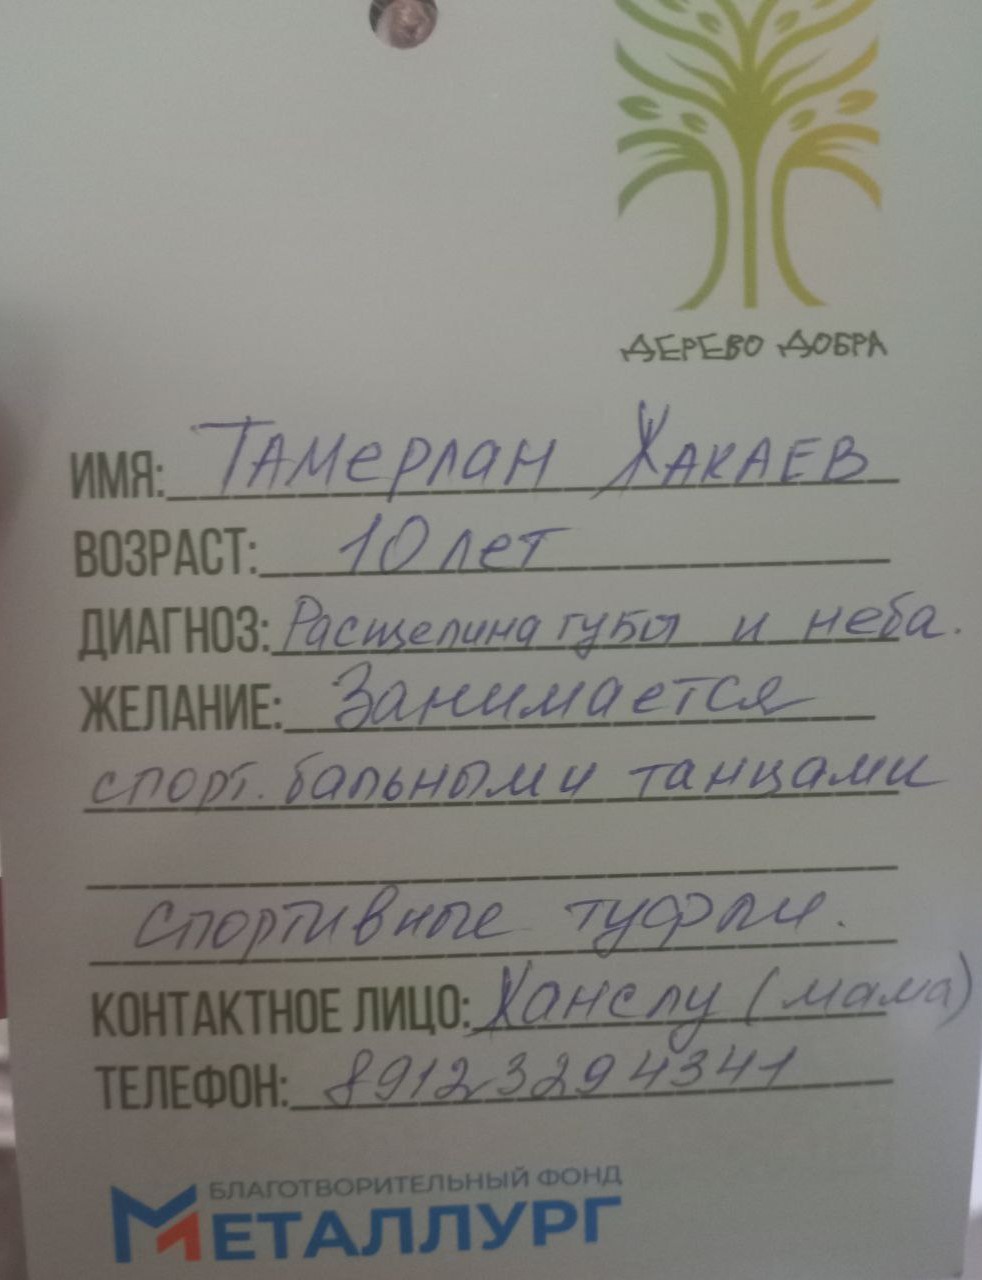 ДЕРЕВО ДОБРА
ИМЯ: Тамерлан Жакаев
ВОЗРАСТ: 10 лет
ДИАГНОЗ: Расщелина губы и неба.
ЖЕЛАНИЕ: Занимается
спорт. бальными танцами
Спортивные туфли.
КОНТАКТНОЕ ЛИЦО: Жанслу (мама)
ТЕЛЕФОН: 89123294341
БЛАГОТВОРИТЕЛЬНЫЙ ФОНД
МЕТАЛЛУРГ